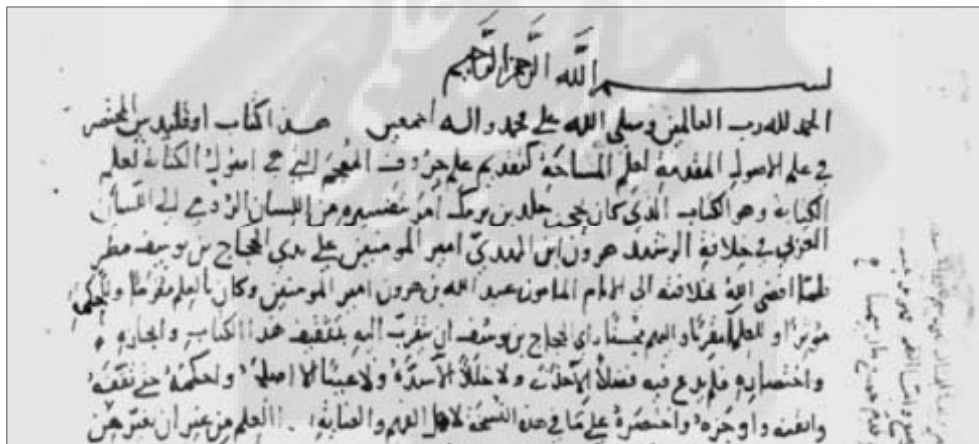 بسم الله الرحمن الرحيم
الحمد لله رب العالمين وصلى الله على محمد واله اجمعين هذا كتاب اوقليدس المختصر
في علم الاصول المقدمة لعلم المساحة كتقديم علم حروف المعجم التي هي اصول الكتابة لعلم
الكتابة وهو الكتاب الذي كان يحيى بن خلد بن برمك امر بتفسيره من اللسان الرومي الى اللسان
العربي في خلافة الرشيد هرون ابن المهدي امير المومنين على يدي الحجاج بن يوسف مطر
فلما افضى الله بخلافته الى الامام المامون عبد الله بن هرون امير المومنين وكان بالعلم مغرما وللحكمة
موثرا وللعلما مقربا واليهم محسنا راى الحجاج بن يوسف ان يتقرب اليه بتثقيف هذا الكتاب وايجازه
واختصاره فلم يدع فيه فضلا الا حذفه ولا خللا الا سده ولا عيبا الا اصلحه واحكمه حتى ثقفه
واتقنه واوجزه واختصره على ما في هذه النسخة لاهل الفهم والعناية العلم من غير ان يغير من